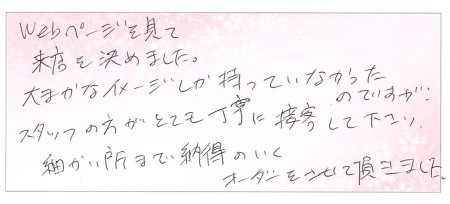 Webページを見て
来店を決めました。
大まかなイメージしか持っていなかった
のですが…
スタッフの方がとても丁寧に接客して下さり、
細かい所まで納得のいく
オーダーをさせて頂きました。